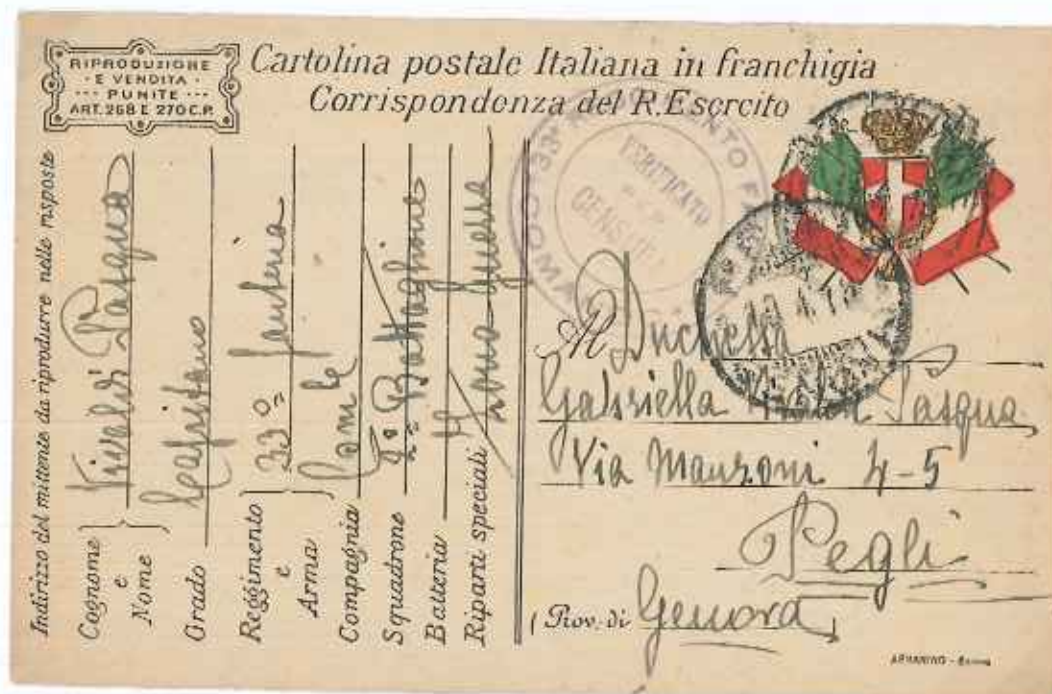 RIPRODUZIONE
E VENDITA
PUNITE
ART. 268 E 270 C.P.
Cartolina postale Italiana in franchigia
Corrispondenza del R. Esercito
VERIFICATO
PER
CENSURA
Indirizzo del mittente da riprodurre nelle risposte
Cognome e Nome Vivaldi Pasqua
Grado Capitano
Reggimento e Arma 33° Fanteria
Compagnia Com
Squadrone 2° Battaglione
Batteria
Riparti speciali Zona Guerra
Al Duchessa
Gabriella Pasqua
Via Manzoni 4-5
Pegli
(Prov. di Genova)
ARMANINO - Genova